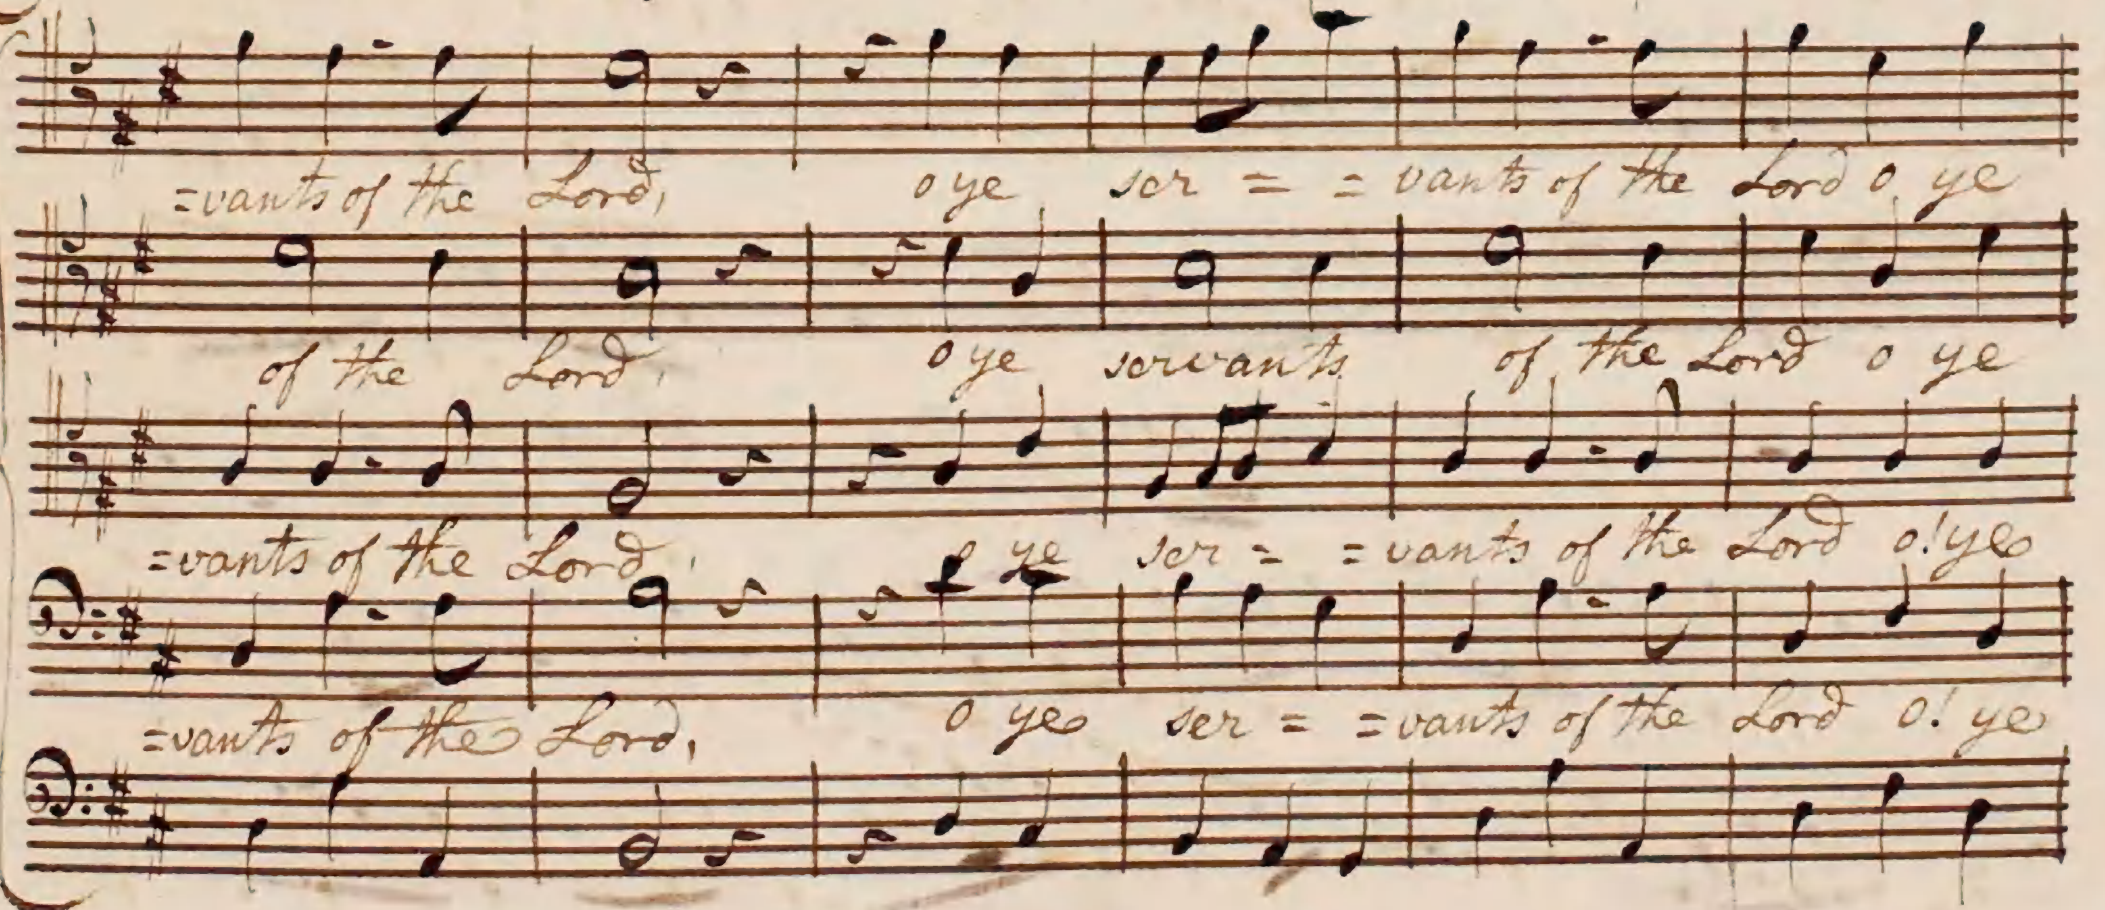 =vants of the Lord, o ye ser = = vants of the Lord o ye
of the Lord, o ye servants of the Lord o ye
=vants of the Lord, o ye ser = = vants of the Lord o! ye
=vants of the Lord, o ye ser = = vants of the Lord o! ye